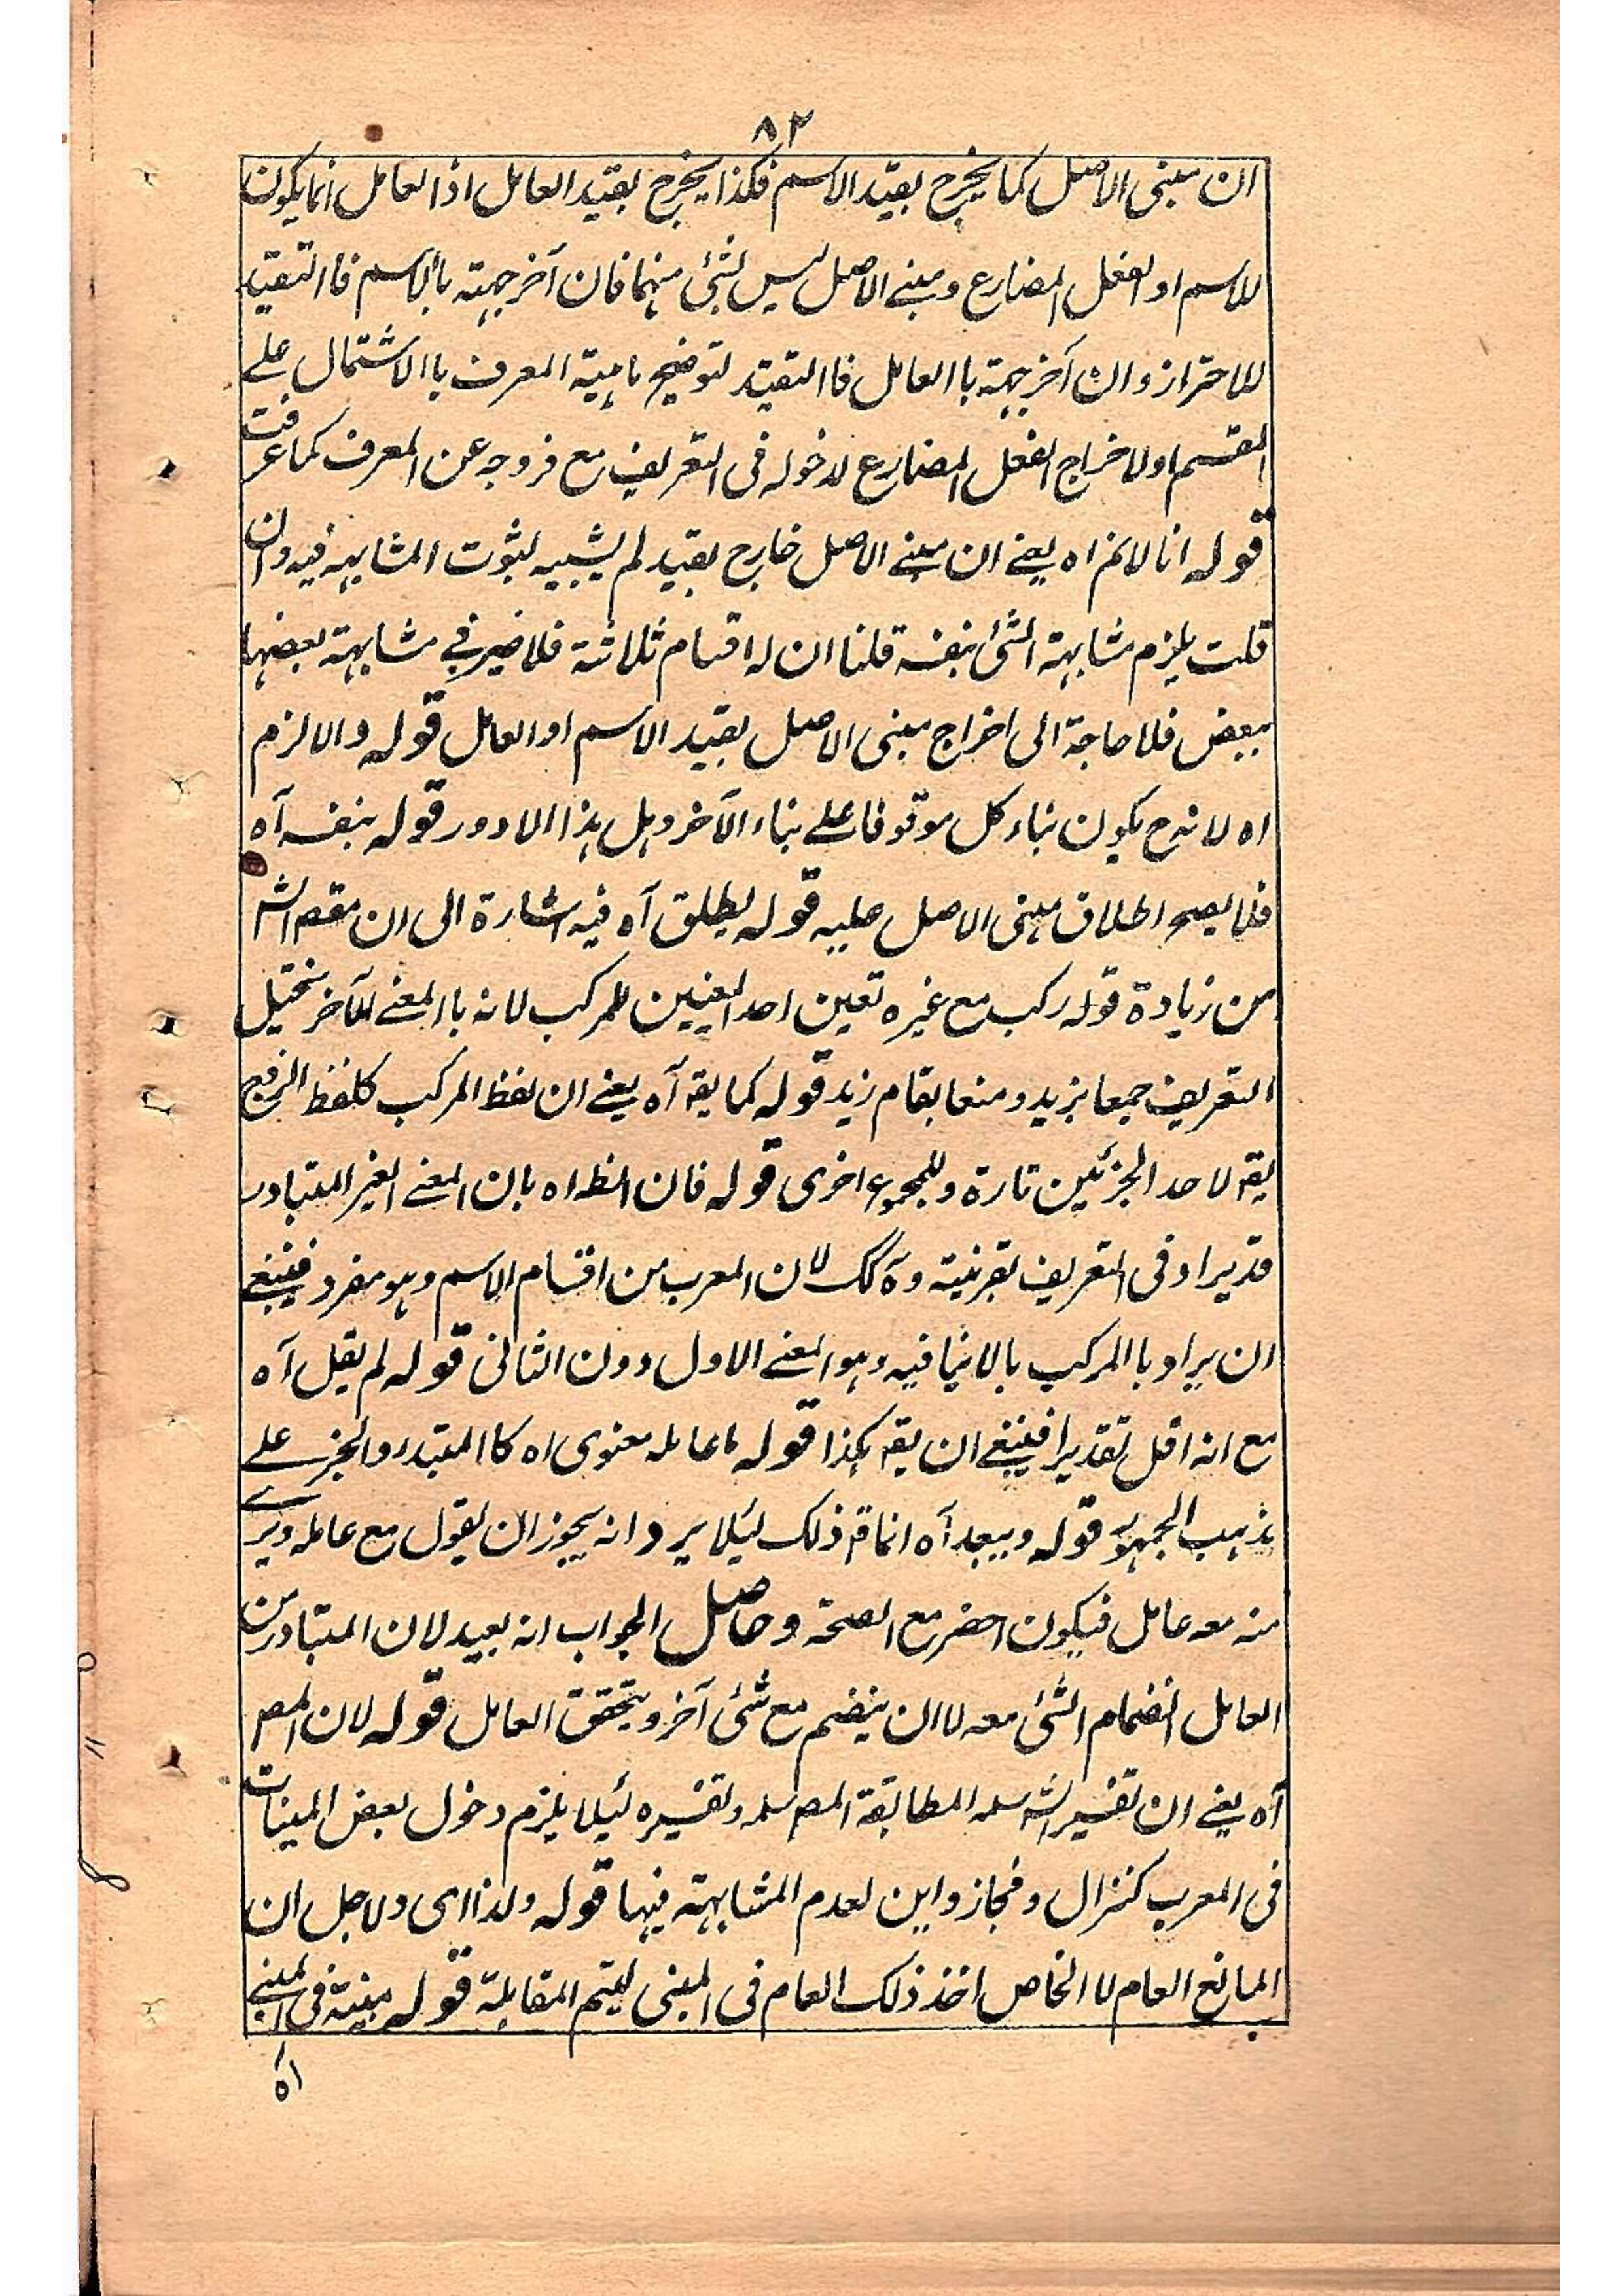 ۸۲
ان مبنی الاصل کما یخرج بقید الاسم فکذا یخرج بقید العامل اذا العامل انما یکون
للاسم او الفعل المضارع و مبنے الاصل لیس بشئ منہما فان آخرجہتہ باالاسم فاالتقید
للاحتراز وان آخرجہتہ باالعامل فاالتقید لتوضیح ماہیۃ المعرف باالاشتمال علے
المقسم اولاخراج الفعل المضارع لدخولہ فی التعریف مع خروجہ عن المعرف کما عرفت
قولہ انا لانم اہ یعنے ان مبنے الاصل خارج بقید لم یشبیہ لثبوت المشابہہ فیہ وان
قلت یلزم مشابہتہ الشئ بنفسہ قلنا ان لہ اقسام ثلاثتہ فلا ضیر فی مشابہتہ بعضہا
ببعض فلا حاجۃ الی اخراج مبنی الاصل بقید الاسم او العامل قولہ والا لزم
اہ لانہ ح یکون بناء کل موقوفا علے بناء الآخر وہل ہذا الا دور قولہ بنفسہ آہ
فلا یصح اطلاق مبنی الاصل علیہ قولہ یطلق آہ فیہ اشارۃ الی ان مقصم الشہ
من زیادۃ قولہ رکب مع غیرہ تعین احد المعنیین للمرکب لانہ باالمعنے الآخر یختیل
التعریف جمعا بزید و منعا بقام زید قولہ کما یقہ آہ یعنے ان لفظ المرکب کلفظ الزوج
یقہ لاحد الجزئین تارۃ و للمجموع اخری قولہ فان الظہ اہ بان المعنے الغیر المتبادر
قد یراد فی التعریف بقرینتہ وہ کک لان المعرب من اقسام الاسم وہو مفرد فینبغے
ان یراد باالمرکب بالاینافیہ وہو المعنے الاول دون الثانی قولہ لم یقل آہ
مع انہ اقل تقدیرا فینبغے ان یقہ ہکذا قولہ ما عاملہ معنوی اہ کاالمبتدء والخبر علے
مذہب الجمہور قولہ ویبعد آہ انما قہ ذلک لئیلا یرد انہ یجوز ان یقول مع عاملہ ویر
منہ معہ عامل فیکون احضر مع الصحۃ وحاصل الجواب انہ بعید لان المتبادر من
العامل انضمام الشئ معہ لا ان ینضم مع شئ آخر ویتحقق العامل قولہ لان المصہ
آہ یعنے ان تفسیر الشہ سلہ المطابقۃ المصہ سلہ وتفسیرہ لئیلا یلزم دخول بعض المبینات
فی المعرب کنزال و فجاز و این لعدم المشابہتہ فیہا قولہ ولذا ای ولاجل ان
المانع العام لا الخاص اخذ ذلک العام فی المبنی لیتم المقابلۃ قولہ مبنیتہ فی المبنے
اہ